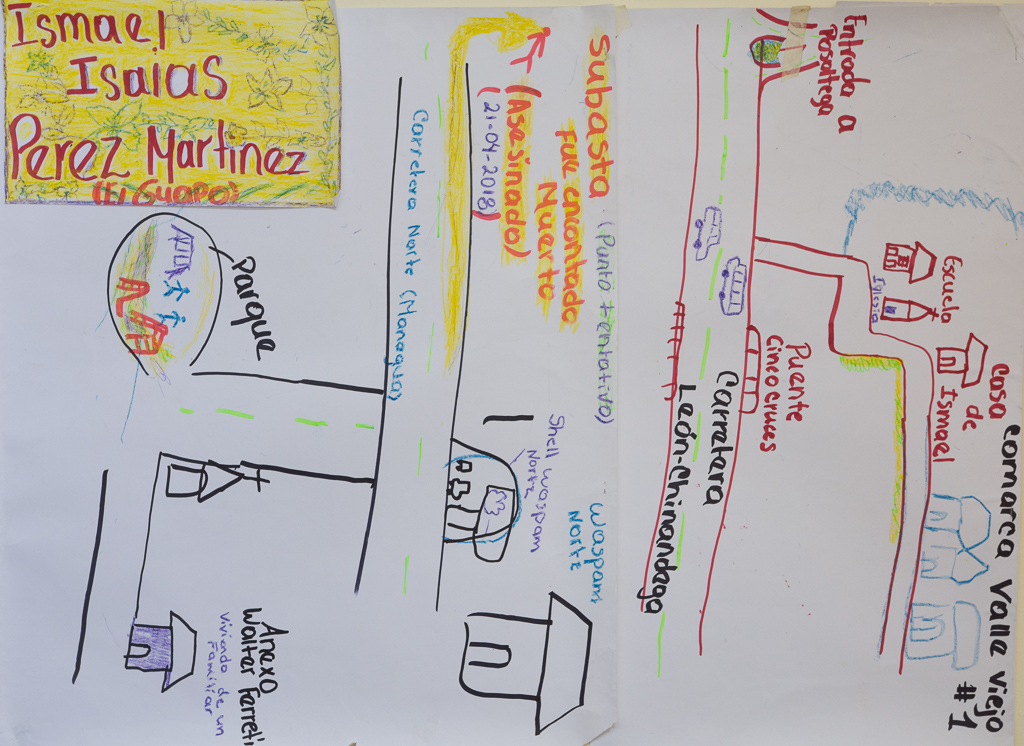 Ismael
Isaias
Perez Martinez
(El Guapo)
comarca Valle viejo
#1
Entrada a
Posoltega
Escuela
Iglesia
Casa
de
Ismael
Puente
Cinco Cruces
Carretara
León-Chinandega
Subasta (Punto tentativo)
Fue encontado
Muerto
(Asesinado)
(21-04-2018)
Waspam
Norte
Shell waspam
Norte
Carretera Norte (Managua)
Parque
Anexo
Walter Ferreti
Viviendo de un
Familiar